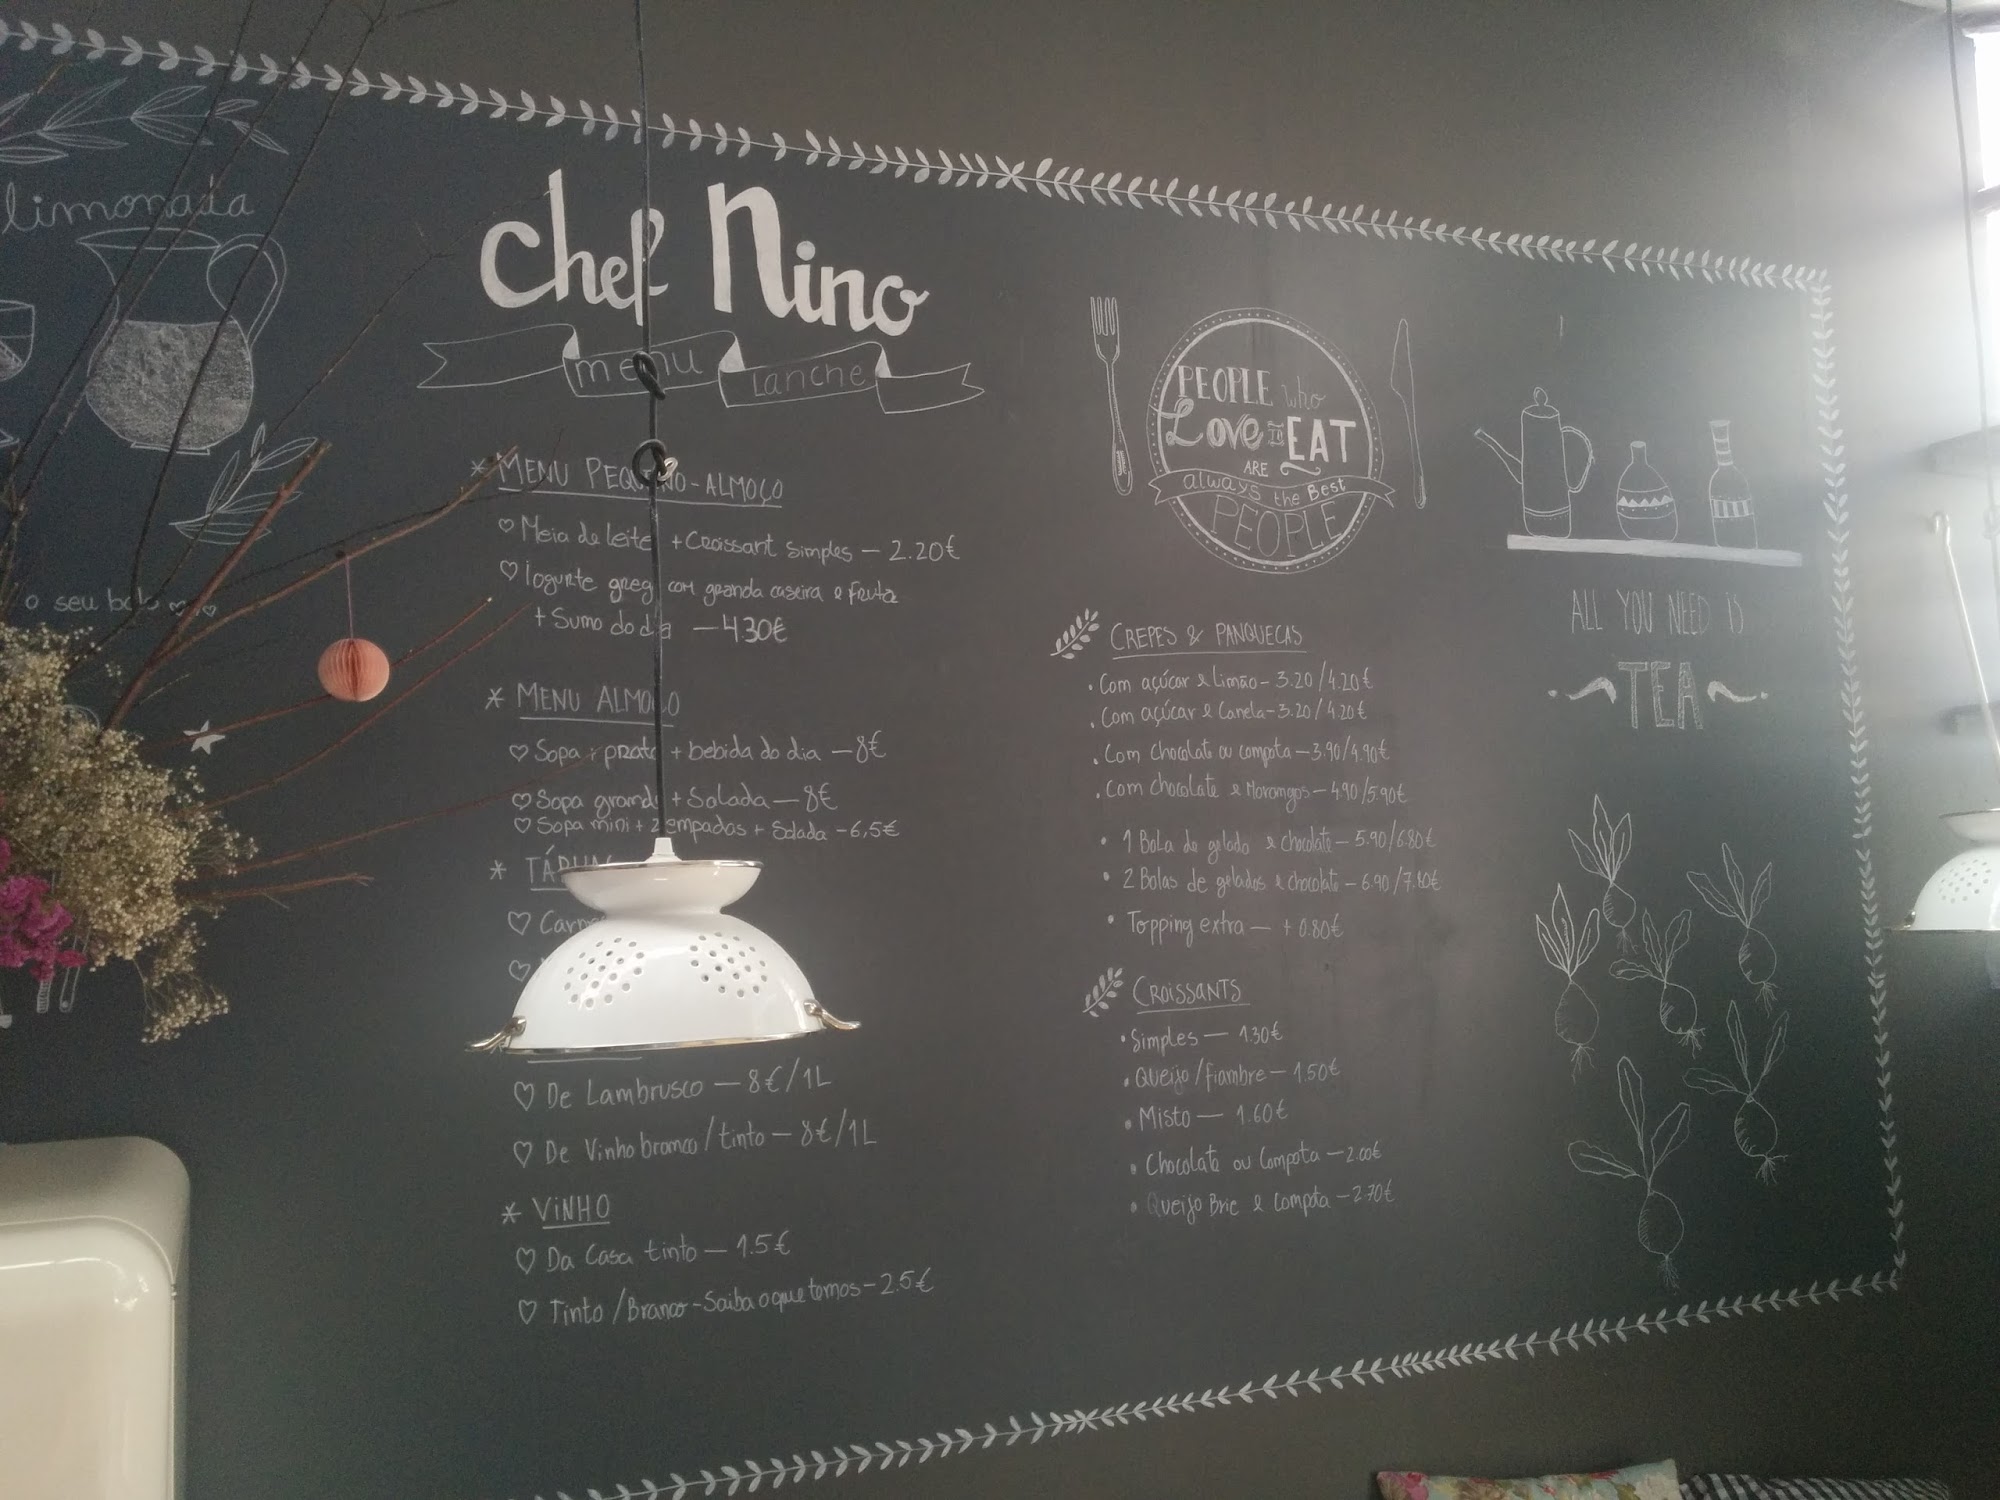 limonada
o seu bolo
Chef Nino
menu Lanche
* MENU PEQUENO-ALMOÇO
♡ Meia de leite + Croissant simples — 2.20€
♡ Iogurte greg com granda caseira e fruta
+ Sumo do dia — 4.30€
* MENU ALMOÇO
♡ Sopa + prato + bebida do dia — 8€
♡ Sopa grande + Salada — 8€
♡ Sopa mini + 2 empadas + Salada - 6,5€
* TÁBUAS
♡
♡
♡ De Lambrusco — 8€/1L
♡ De Vinho branco / tinto — 8€/1L
* VINHO
♡ Da Casa tinto — 1.5€
♡ Tinto / Branco - Saiba o que temos - 2.5€
PEOPLE who
Love to EAT
ARE
always the Best
PEOPLE
CREPES & PANQUECAS
. Com açúcar e Limão - 3.20/4.20€
. Com açúcar e Canela - 3.20/4.20€
. Com chocolate ou compota — 3.90/4.90€
. Com chocolate e Morangos — 4.90/5.90€
• 1 Bola de gelado e chocolate — 5.90/6.80€
• 2 Bolas de gelados e chocolate — 6.90/7.80€
• Topping extra — + 0.80€
CROISSANTS
• Simples — 1.30€
• Queijo/fiambre — 1.50€
• Misto — 1.60€
• Chocolate ou Compota — 2.00€
• Queijo Brie e Compota — 2.70€
ALL YOU NEED is
TEA